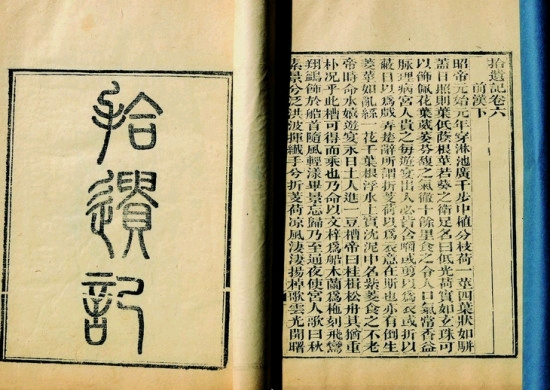 拾遺記卷六
前漢下
昭帝元始元年穿淋池廣千步中植分枝荷一莖四葉狀如駢
蓋日照則葉低蔭根莖若葵之衛足名曰低光荷實如玄珠可
以飾佩花葉葳萎芬馥之氣徹十餘里食之令人口氣常香益
脉理病宮人貴之每遊宴出入必皆含嚼或剪以爲衣或折以
蔽日以爲戲弄楚辭所謂折芰荷以爲衣意在斯也亦有倒生
菱莖如亂絲一花千葉根浮水上實沈泥中名紫菱食之不老
帝時命水嬉遊宴永日士人進一豆槽帝曰桂楫松舟其猶重
朴况乎此槽可得而乘也乃命以文梓爲船木蘭爲柂刻飛鸞
翔鷁飾於船首隨風輕漾畢景忘歸乃至通夜使宮人歌曰秋
素景兮泛洪波揮纖手兮折芰荷涼風淒淒揚棹歌雲光開曙
拾遺記